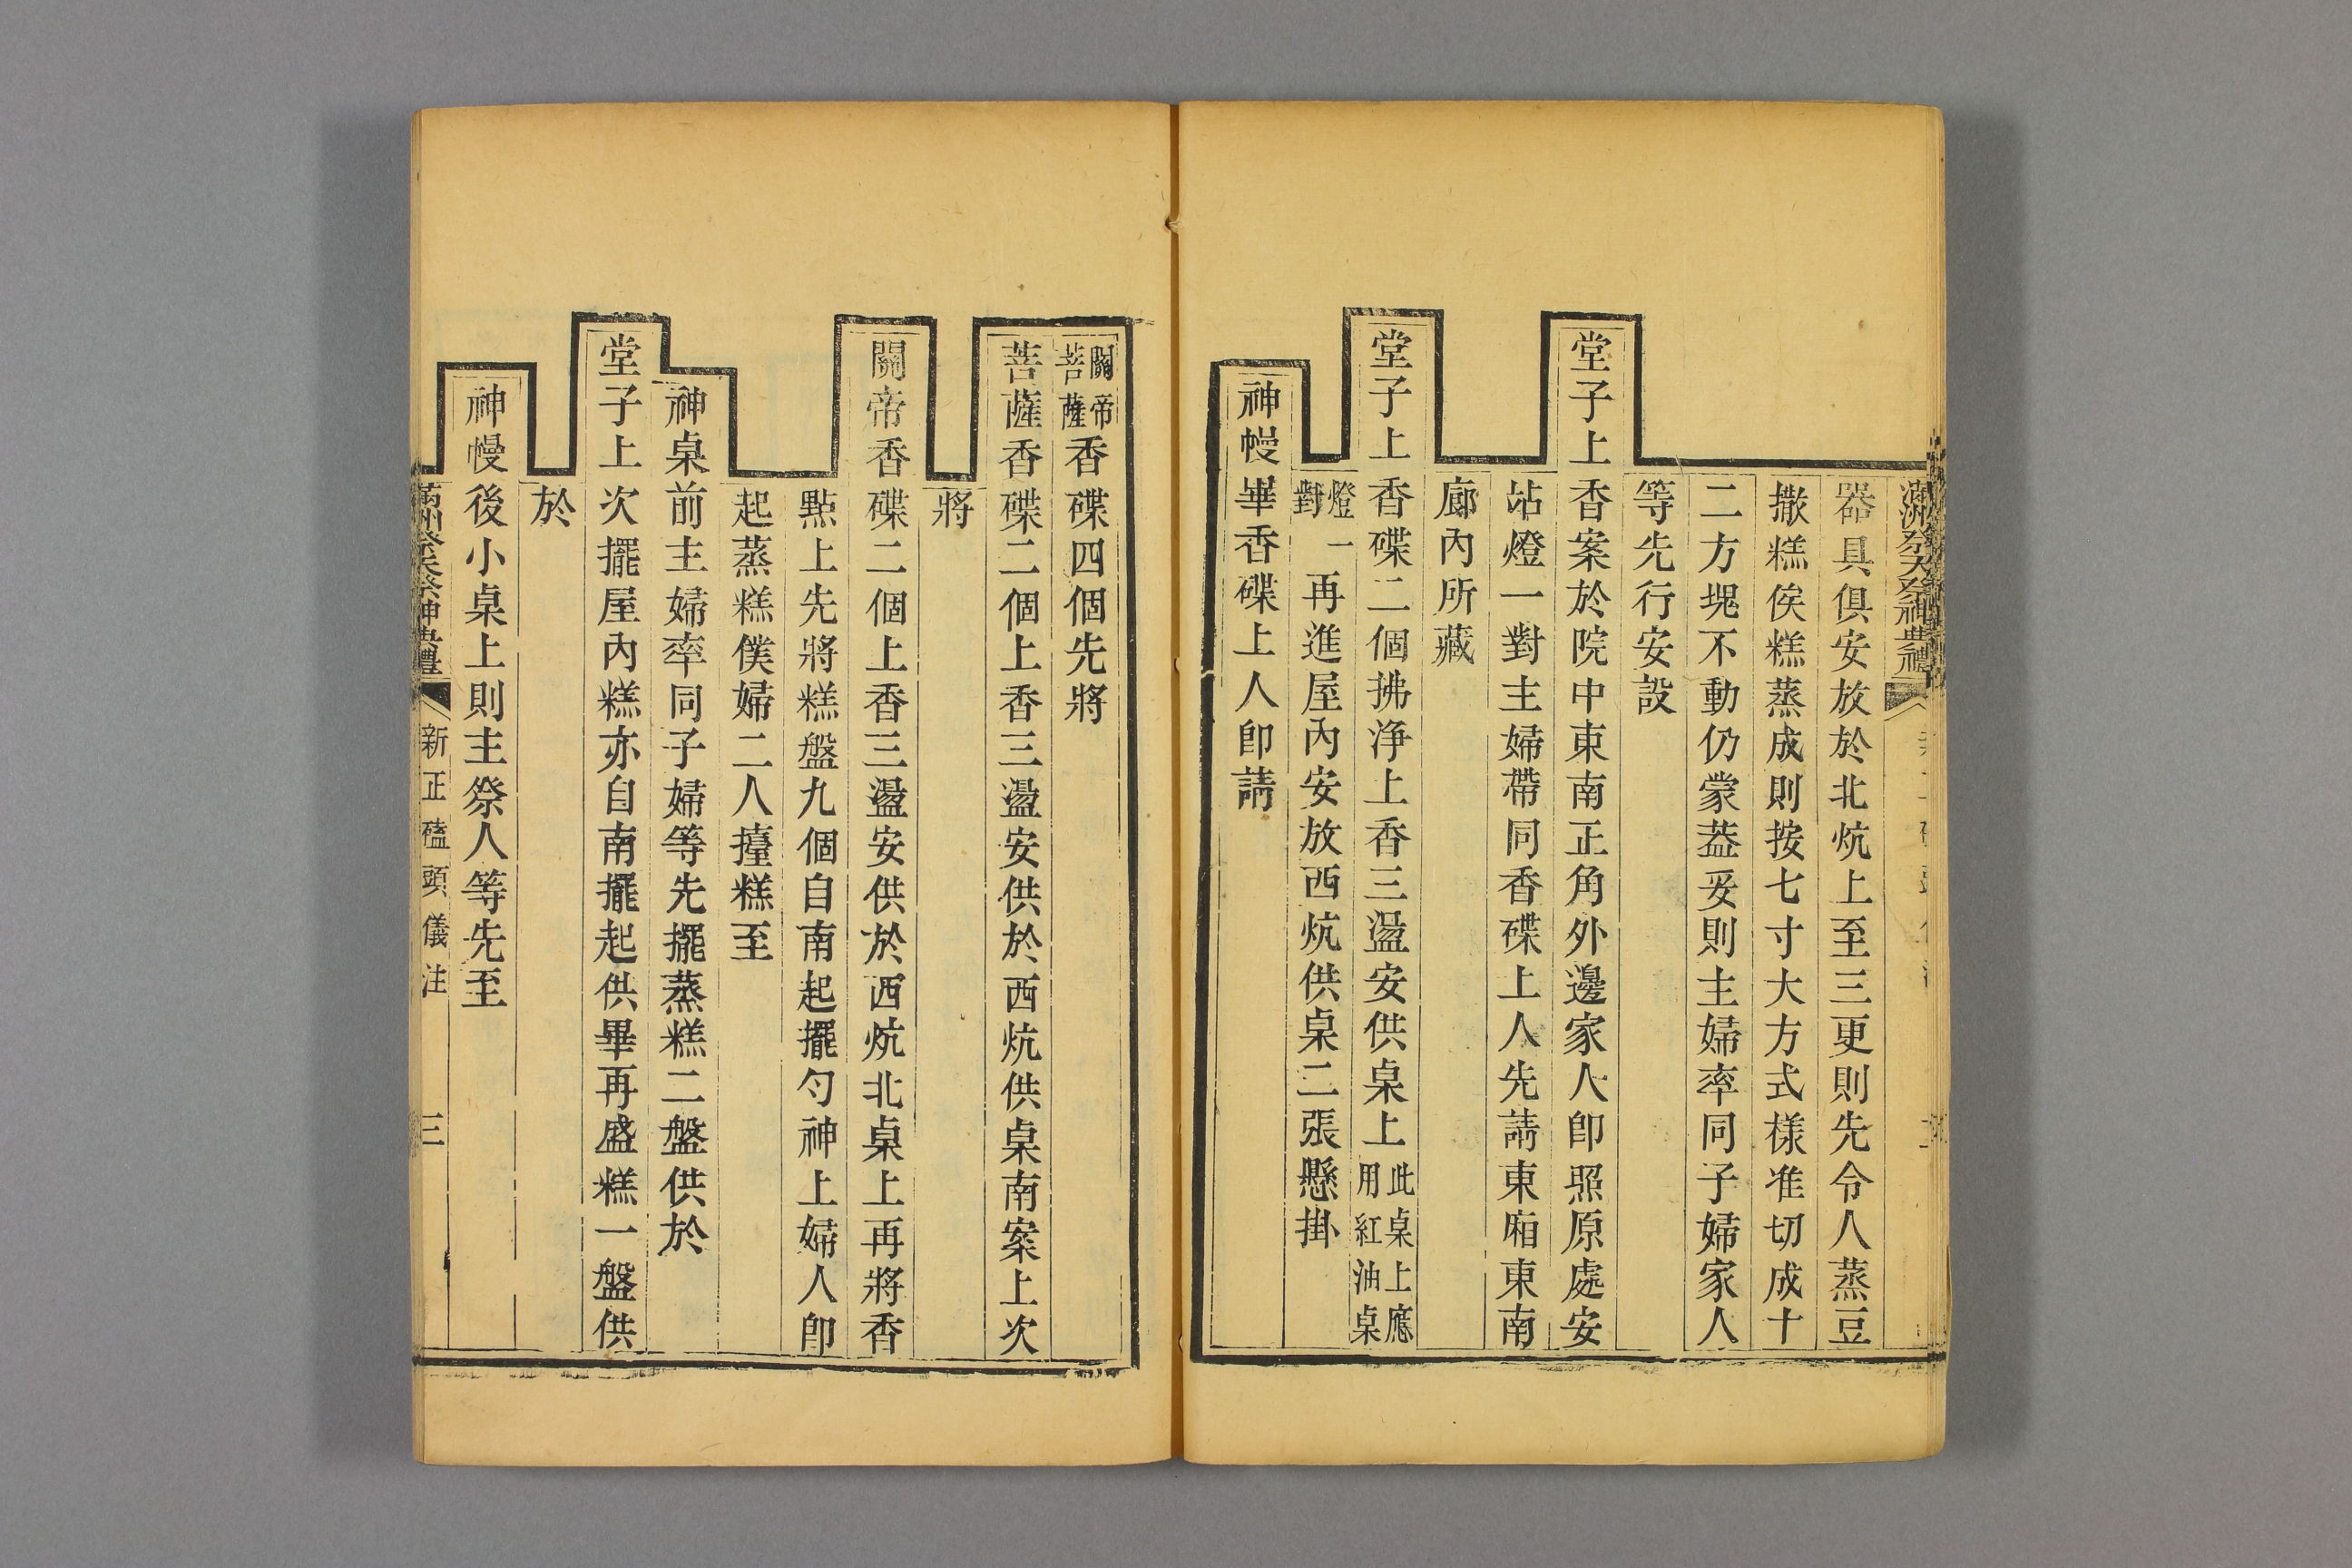 滿洲祭天祭神典禮
器具俱安放於北炕上至三更則先令人蒸豆
撒糕俟糕蒸成則按七寸大方式樣准切成十
二方塊不動仍蒙葢妥則主婦率同子婦家人
等先行安設
堂子上香案於院中東南正角外邊家人卽照原處安
站燈一對主婦帶同香碟上人先請東廂東南
廊內所藏
堂子上香碟二個拂浄上香三盪安供桌上此桌上應用紅油桌
燈一對再進屋內安放西炕供桌二張懸掛
神幔畢香碟上人卽請
關帝菩薩香碟四個先將
菩薩香碟二個上香三盪安供於西炕供桌南案上次
將
關帝香碟二個上香三盪安供於西炕北桌上再將香
㸃上先將糕盤九個自南起擺勻神上婦人卽
起蒸糕僕婦二人擡糕至
神桌前主婦率同子婦等先擺蒸糕二盤供於
堂子上次擺屋內糕亦自南擺起供畢再盛糕一盤供
於
神幔後小桌上則主祭人等先至
滿洲祭天祭神典禮 新正磕頭儀注 三